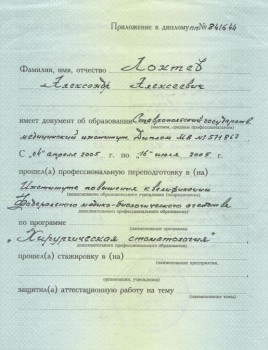 Приложение к диплому ПП № 841644
Фамилия, имя, отчество Локтев
Александр Алексеевич
имеет документ об образовании Ставропольский государств.
(высшем, среднем профессиональном)
медицинский институт Диплом
С "04" апреля 2005 г. по "16" июля 2005 г.
прошел(а) профессиональную переподготовку в (на)
(наименование
Институте повышения квалификации
Федерального медико-биологического агентства
дополнительного профессионального образования)
по программе
(наименование программы
"Хирургическая стоматология"
дополнительного профессионального образования)
прошел(а) стажировку в (на)
(наименование предприятия,
организации, учреждения)
защитил(а) аттестационную работу на тему
(наименование темы)